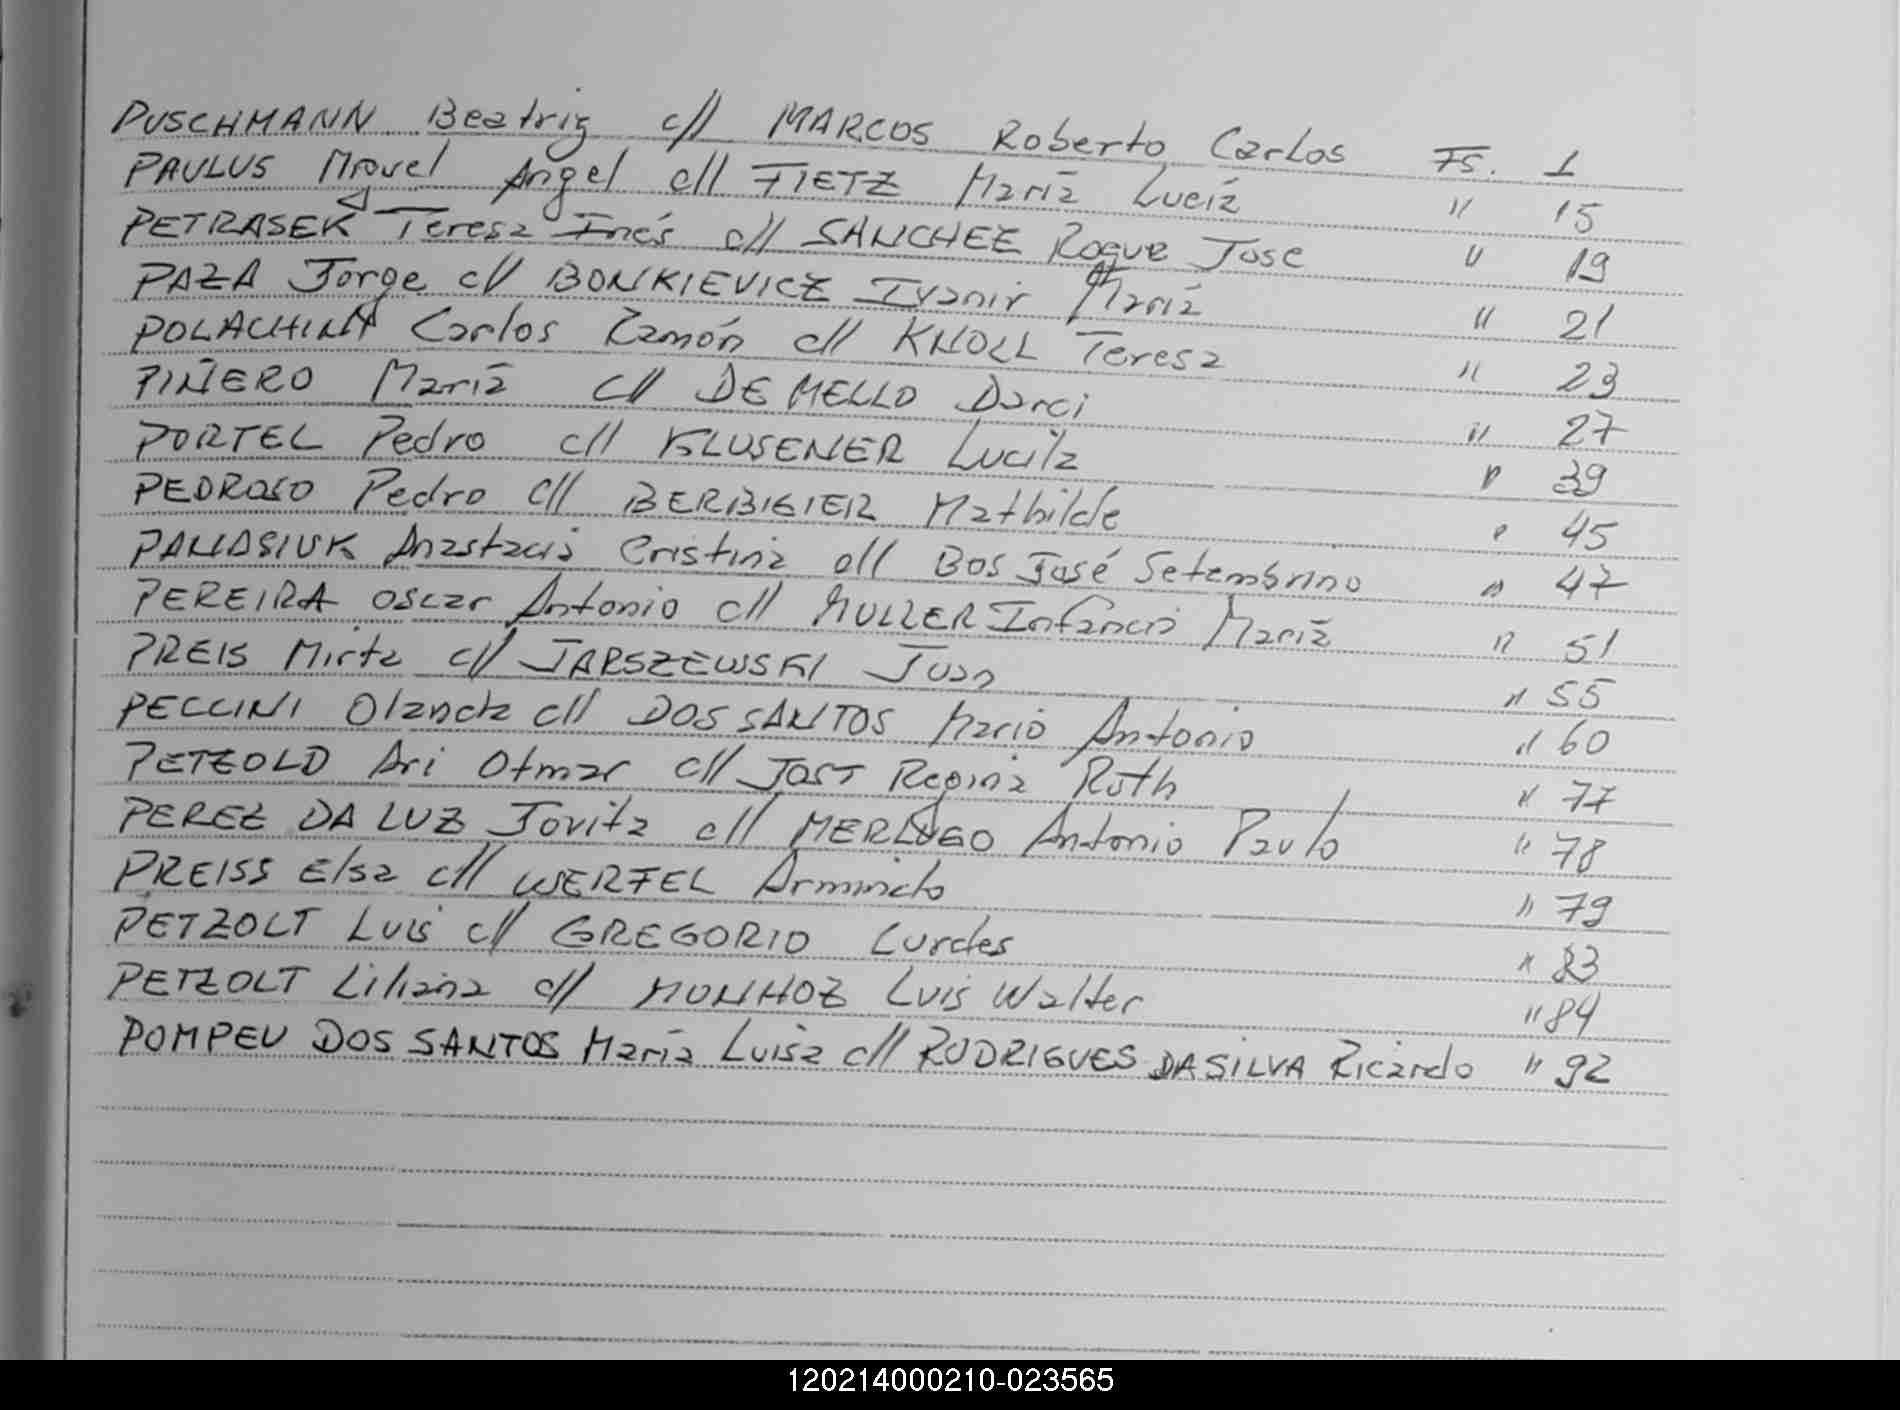 PUSCHMANN Beatriz c// MARCOS Roberto Carlos Fs. 1
PAULUS Miguel Angel c// FIETZ María Lucía " 15
PETRASEK Teresa Inés c// SANCHEZ Roque Jose " 19
PAZA Jorge c// BONKIEVICZ Ivanir María " 21
POLACHINA Carlos Ramón c// KNOLL Teresa " 23
PIÑERO María c// DE MELLO Darci " 27
PORTEL Pedro c// KLUSENER Lucila " 39
PEDROSO Pedro c// BERBIGIER Mathilde " 45
PANASIUK Anastacia Cristina c// BOS José Setembrino " 47
PEREIRA Oscar Antonio c// MULLER Infancia María " 51
PREIS Mirta c// JARSZEWSKI Juan " 55
PECCINI Olanda c// DOS SANTOS Mario Antonio " 60
PETZOLD Ari Otmar c// JOST Regina Ruth " 77
PEREZ DA LUZ Jovita c// Antonio Paulo " 78
PREISS Elsa c// WERFEL Armindo " 79
PETZOLT Luis c// GREGORIO Lurdes " 83
PETZOLT Liliana c// MUNHOZ Luis Walter " 84
POMPEU DOS SANTOS María Luisa c// RODRIGUES DA SILVA Ricardo " 92
120214000210-023565